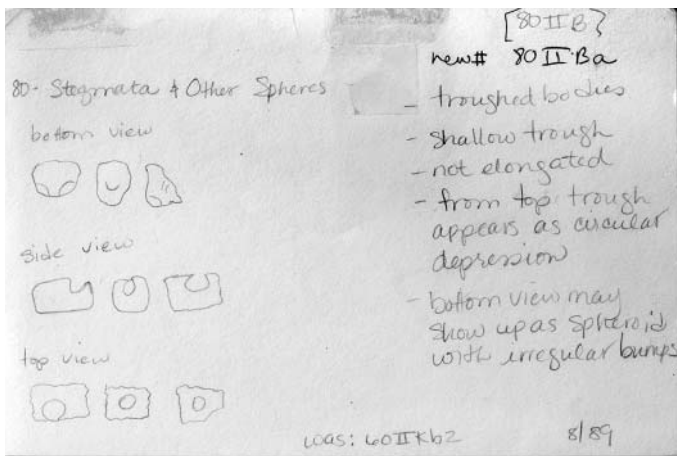 [80 II B}
new# 80 II Ba
80- Stegmata & Other Spheres
bottom view
side view
top view
- troughed bodies
- shallow trough
- not elongated
- from top trough
appears as circular
depression
- bottom view may
show up as spheroid
with irregular bumps
was: 60IIKb2
8/89